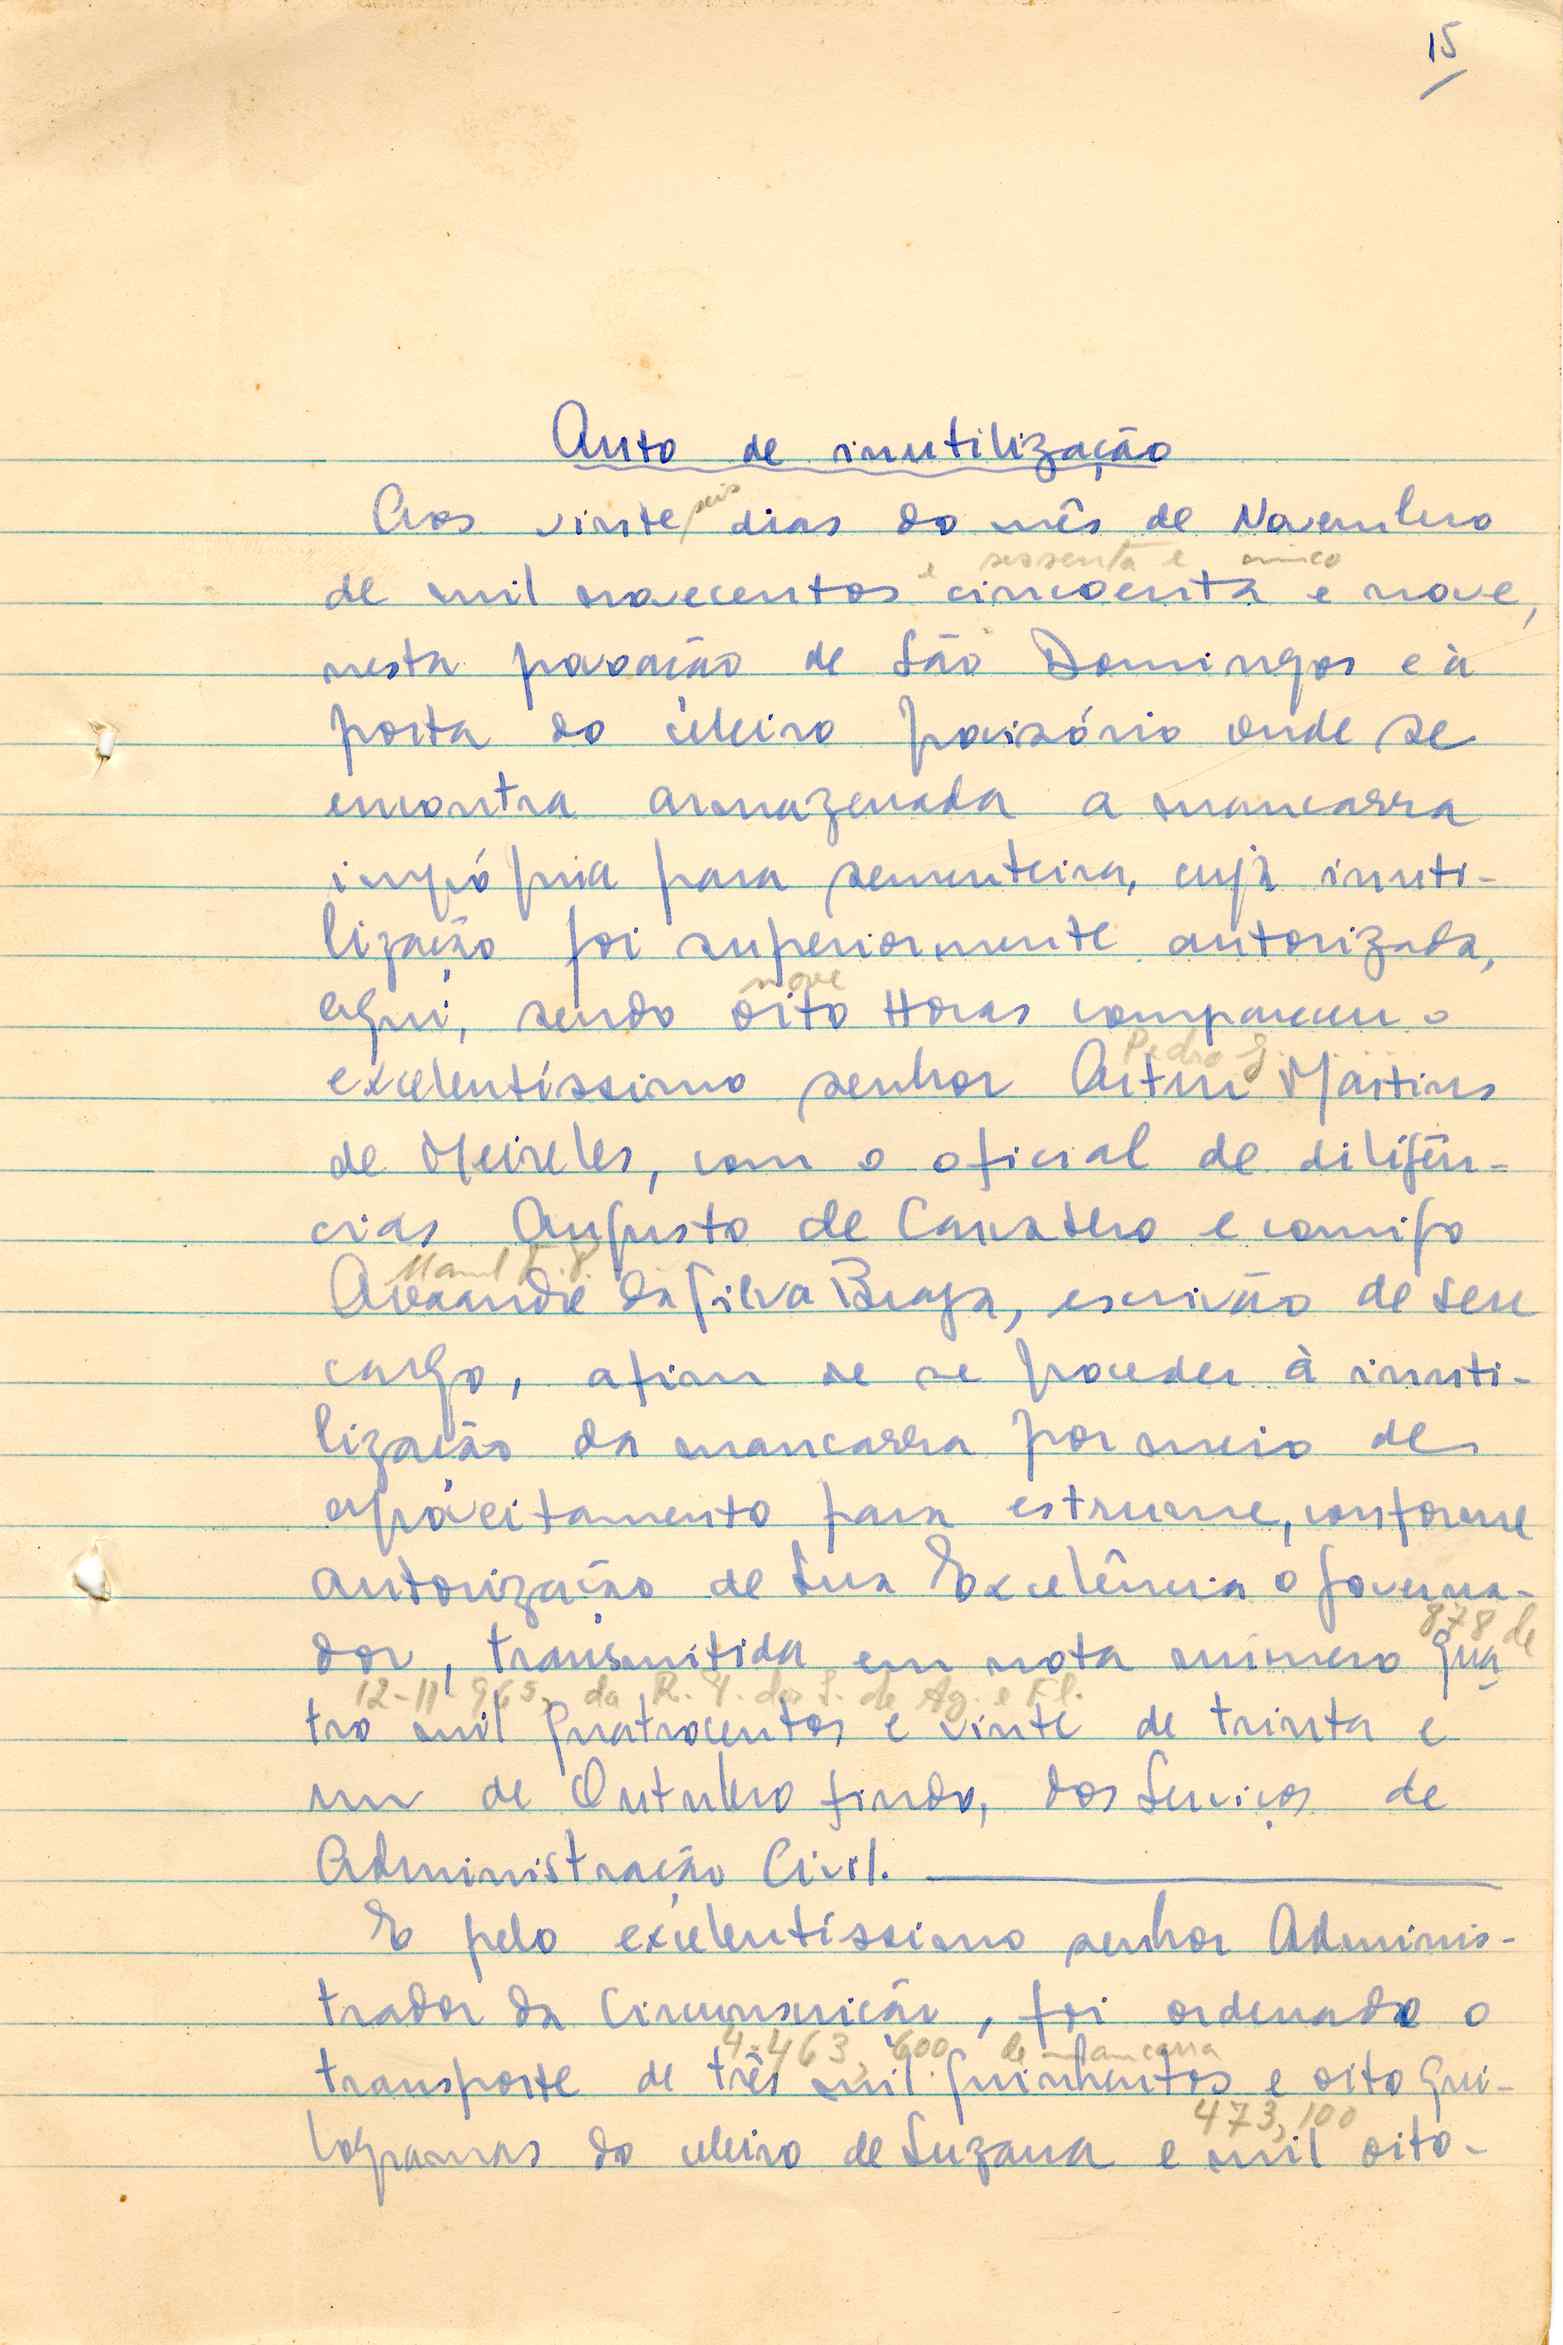 15
Auto de inutilização
seis
Aos vinte dias do mês de Novembro
e sessenta e cinco
de mil novecentos cincoenta e nove,
nesta povoação de São Domingos e à
porta do celeiro provisório onde se
encontra armazenada a mancarra
imprópria para sementeira, cuja inuti-
lização foi superiormente autorizada,
nove
aqui, sendo oito Horas compareceu o
Pedro J.
excelentíssimo senhor Artur Martins
de Meireles, com o oficial de diligên-
cias Augusto de Carvalho e comigo
Manuel
da Silva Braga, escrivão de seu
cargo, afim de se proceder à inuti-
lização da mancarra por meio de
aproveitamento para estrume, conforme
autorização de Sua Excelência o Governa-
878 de
dor, transmitida em nota número qua
12-11-965, da R. P. dos S. de Ag. e Fl.
tro mil quatrocentos e vinte de trinta e
um de Outubro findo, dos Serviços de
Administração Civil.
E pelo excelentíssimo senhor Adminis-
trador da Circunscrição, foi ordenado o
4.463,600 de mancarra
transporte de três mil quinhentos e oito qui-
473,100
logramas do celeiro de Suzana e mil oito-